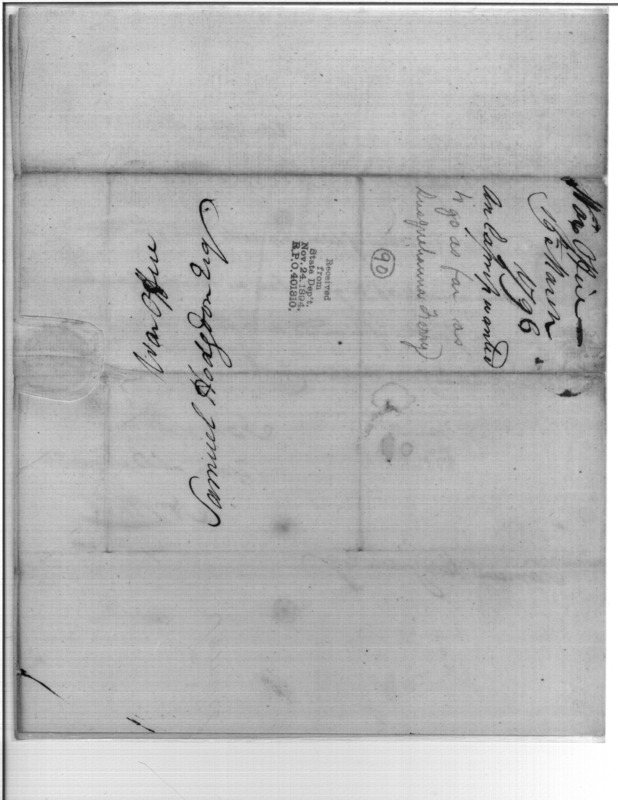 War Office
15th March
1796
An Express wanted
to go as far as
Susquehanna Ferry
90
Received
from
State Dep't.
Nov. 24, 1894.
R.P.O. 401810.
Samuel Hodgdon Esqr.
War Office